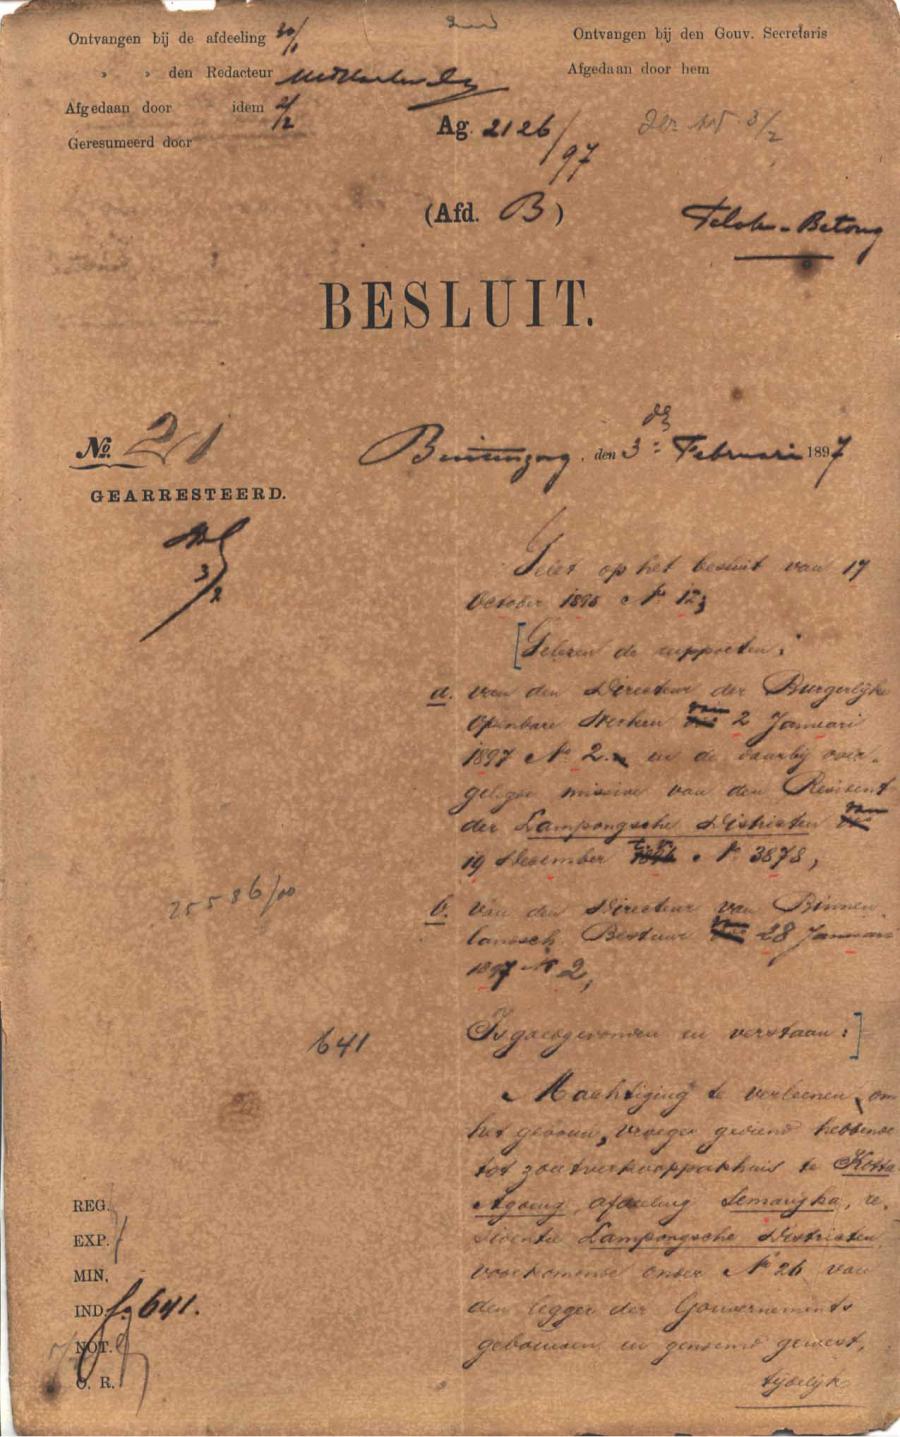 Ontvangen bij de afdeeling 30/1
Ontvangen bij den Gouv. Secretaris
" " den Redacteur
Afgedaan door hem
Afgedaan door idem 2/2
Ag. 2126/97
3/2
Geresumeerd door
(Afd. B)
Telok-Betong
BESLUIT.
No. 21
Buitenzorg, den 3de Februari 1897
GEARRESTEERD.
3/2
Gelet op het besluit van 17
October 1895 No 12;
[Gelezen de rapporten:
a. van den Directeur der Burgerlijke
Openbare Werken van 2 Januari
1897 No 2 en de daarbij over-
gelegde missive van den Resident
der Lampongsche Districten van
19 December No 3878,
25586/00
b. van den Directeur van Binnen-
landsch Bestuur van 28 Januari
1897 No 2,
Is goedgevonden en verstaan:]
641
Machtiging te verleenen, om
het gebouw, vroeger gediend hebbende
tot zoutverkooppakhuis te Kotta
Agoeng, afdeeling Semangka, re-
sidentie Lampongsche Districten,
voorkomende onder No 26 van
den legger der Gouvernements
gebouwen in genoemd gewest,
tijdelijk
REG.
EXP.
MIN.
IND. 641.
NOT.
O. R.